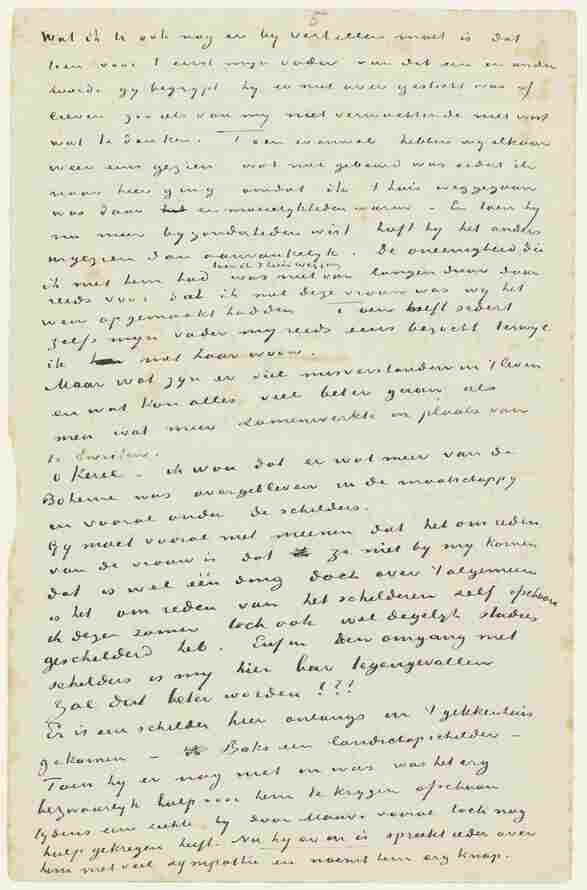 5
Wat ik U ook nog er by vertellen moet is dat
toen voor 't eerst myn vader van dit een en ander
hoorde gy begrypt hy er niet over gesticht was of
liever zoo iets van my niet verwachtende niet wist
wat te denken. Toen evenwel hebben wy elkaar
weer eens gezien wat niet gebeurd was sedert ik
naar hier ging omdat ik t'huis weggegaan
was daar er moeielykheden waren – En toen hy
nu meer byzonderheden wist heeft hy het anders
ingezien dan aanvankelyk. De oneenigheid die
ik met hem had toen ik t'huis wegging was niet van langen duur daar
reeds voor dat ik met deze vrouw was wy het
weer opgemaakt hadden Toen heeft sedert
zelfs myn vader my reeds eens bezocht terwyl
ik met haar woon.
Maar wat zyn er veel misverstanden in 't leven
en wat kon alles veel beter gaan als
men wat meer samenwerkte in plaats van
te twisten.
o Kerel – ik wou dat er wat meer van de
Boheme was overgebleven in de maatschappy
en vooral onder de schilders.
Gy moet vooral niet meenen dat het om reden
van de vrouw is dat ze niet by my komen
dat is wel één ding doch over 't algemeen
is het om reden van het schilderen zelf ofschoon
ik dezen zomer toch ook wel degelyk studies
geschilderd heb. Enfin den omgang met
schilders is my hier bar tegengevallen
Zal dat beter worden???
Er is een schilder hier onlangs in 't gekkenhuis
gekomen – Boks een landschapschilder –
Toen hy er nog niet in was was het erg
bezwaarlyk hulp voor hem te krygen ofschoon
tydens eene ziekte hy door Mauve vooral toch nog
hulp gekregen heeft. Nu hy er in is spreekt ieder over
hem met veel sympathie en noemt hem erg knap.